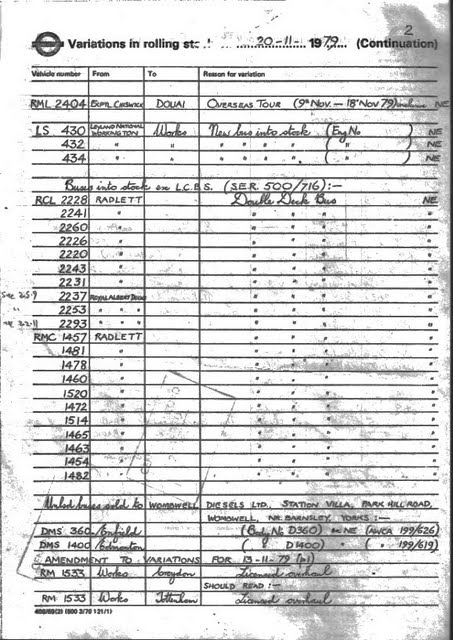 2
Variations in rolling st 20-11- 1979 (Continuation)
Vehicle number From To Reason for variation
RML 2404 EXPTL CHISWICK DOUAI OVERSEAS TOUR (9th Nov. — 18th Nov 79) inclusive NE
LS 430 LEYLAND NATIONAL WORKINGTON Works New bus into stock (Eng No ) NE
432 " " " " " " ( " ) NE
434 " " " " " " ( " ) NE
Buses into stock ex L.C.B.S. (SER. 500/716) :-
RCL 2228 RADLETT Double Deck Bus NE
2241 " " " " "
2260 " " " " "
2226 " " " " "
2220 " " " " "
2243 " " " " "
2231 " " " " "
2237 ROYAL ALBERT DOCK " " " "
2253 " " " " " " "
2293 " " " " " " "
RMC 1457 RADLETT " " " "
1481 " " " " "
1478 " " " " "
1460 " " " " "
1520 " " " " "
1472 " " " " "
1514 " " " " "
1465 " " " " "
1463 " " " " "
1454 " " " " "
1482 " " " " "
buses sold to WOMBWELL DIESELS LTD., STATION VILLA, PARK HILL ROAD,
WOMBWELL, NR. BARNSLEY, YORKS :-
DMS 360 Enfield (Body No D360) NE (AWCA 199/626)
DMS 1400 Edmonton ( " D1400) " ( " 199/619)
AMENDMENT TO VARIATIONS FOR 13-11-79 (p1)
RM 1533 Works Croydon Licensed overhaul
SHOULD READ :-
RM 1533 Works Tottenham Licensed overhaul